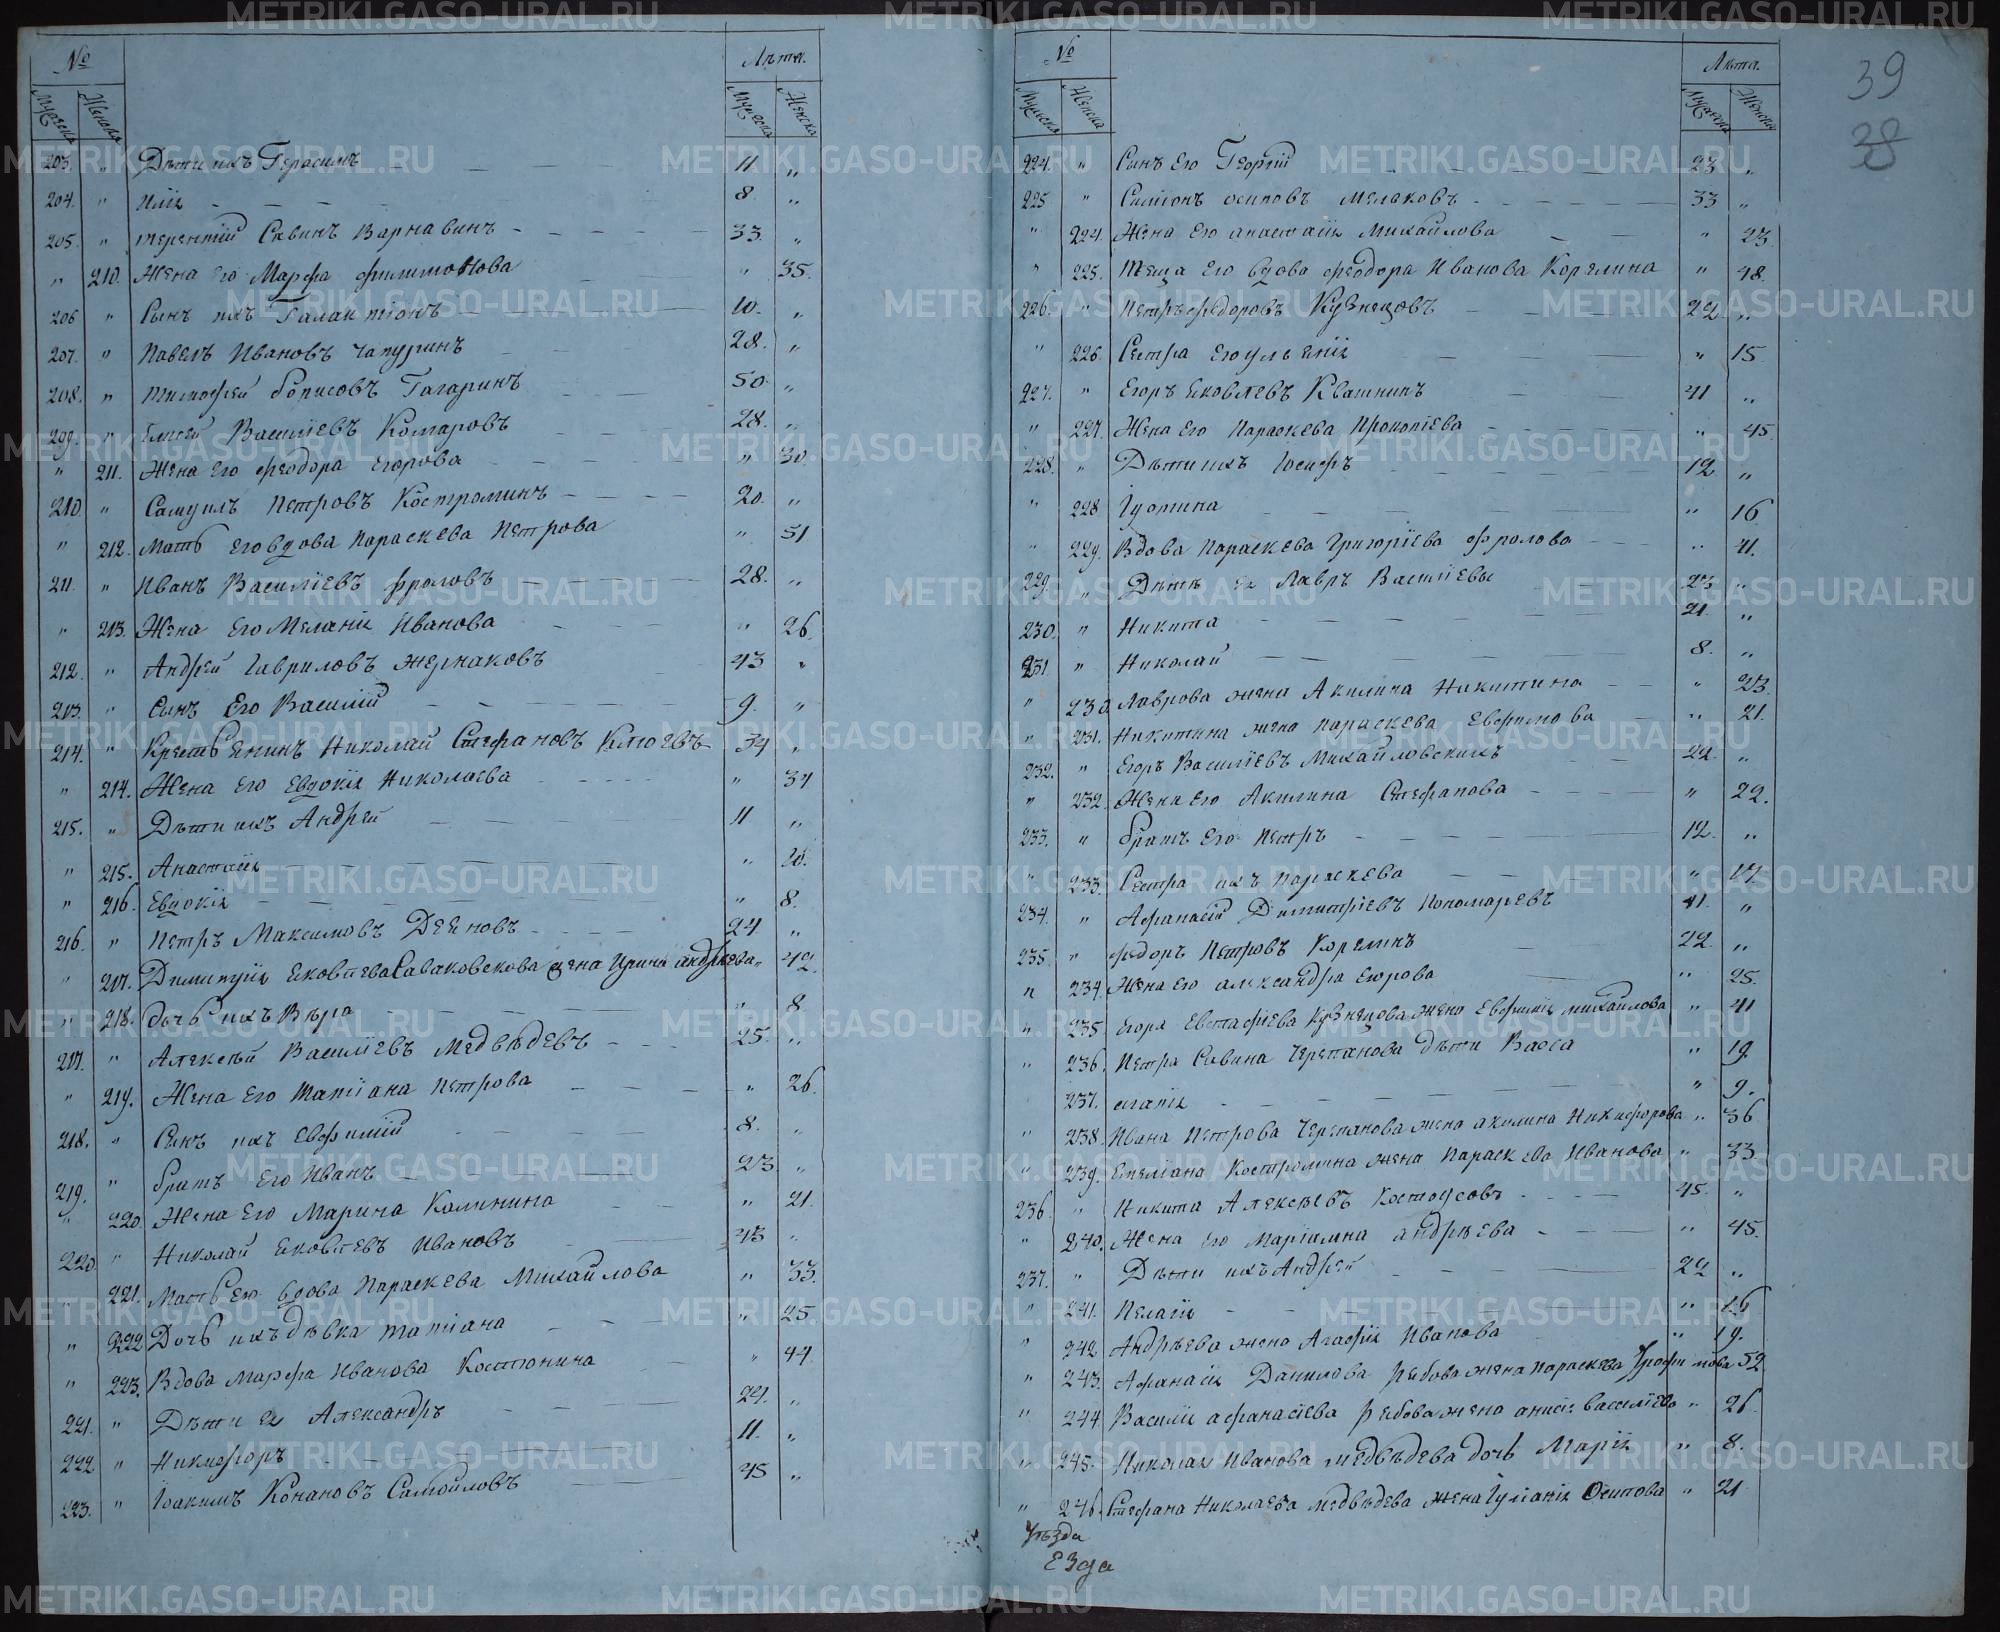 № Лѣта.
Мужеска Женска Мужеска Женска
203. " Дѣти ихъ Герасимъ 11 "
204. " Илія 8. "
205. " Терентій Савинъ Варнавинъ 33. "
" 210. Жена его Марфа Филимонова " 35.
206 " Сынъ ихъ Галактіонъ 10. "
207. " Павелъ Ивановъ Чапуринъ 28. "
208. " Тимофей Борисовъ Гагаринъ 50. "
209. " Елисей Василіевъ Комаровъ 28. "
" 211. Жена его Феодора Егорова " 30.
210. " Самуилъ Петровъ Костроминъ 20. "
" 212. Мать его вдова Параскева Петрова " 51
211. " Иванъ Василіевъ Фроловъ 28. "
" 213. Жена его Меланія Иванова " 26.
212. " Андрей Гавриловъ Жернаковъ 43 "
213. " Сынъ его Василій 9. "
214. " Крестьянинъ Николай Стефановъ Клюевъ 34 "
" 214. Жена его Евдокія Николаева " 34
215. " Дѣти ихъ Андрей 11 "
" 215. Анастасія " 10.
" 216. Евдокія " 8.
216. " Петръ Максимовъ Деяновъ 24. "
" 217. Яковлева жена Ирина Андреева " 42.
" 218. Дочь ихъ Вѣра " 8
217. " Алексѣй Василіевъ Медвѣдевъ 25. "
" 219. Жена его Татіана Петрова " 26.
218. " Сынъ ихъ Евфимій 8. "
219. " Братъ его Иванъ 23 "
" 220. Жена его Марина Калинина " 21.
220. " Николай Яковлевъ Ивановъ 43 "
" 221. Мать его вдова Параскева Михайлова " 33.
" 222 Дочь ихъ дѣвка Татіана " 25
" 223. Вдова Марфа Иванова Костюнина " 44
221. " Дѣти ея Александръ 21. "
222 " Никифоръ 11. "
223. " Іоакимъ Конановъ Самойловъ 45 "
39
38
№ Лѣта.
Мужеска Женска Мужеска Женска
224. " Сынъ его Георгій 23 "
225 " Симіонъ Осиповъ Мельковъ 33 "
" 224. Жена его Анастасія Михайлова " 23.
" 225. Теща его вдова Феодора Иванова Корелина " 48.
226. " Петръ Федоровъ Кузнецовъ 22. "
" 226. Сестра его Ульянія " 15.
227. " Егоръ Яковлевъ Квашнинъ 41 "
" 227. Жена его Параскева Прокопіева " 45.
228. " Дѣти ихъ Іосифъ 12. "
" 228 Іустина " 16
" 229. Вдова Параскева Григоріева Фролова " 41.
229. " Дѣти ея Лавръ Василіевы 23 "
230. " Никита 21. "
231 " Николай 8. "
" 230. Лаврова жена Акилина Никитина " 23.
" 231. Никитина жена Параскева Евфимова " 21.
232. " Егоръ Василіевъ Михайловскихъ 22. "
" 232. Жена его Акилина Стефанова " 22.
233. " Братъ его Петръ 12. "
" 233. Сестра ихъ Параскева " 17.
234. " Афанасій Димитріевъ Пономаревъ 41. "
235. " Федоръ Петровъ Корелинъ 22. "
" 234. Жена его Александра Егорова " 25.
" 235. Егора Евстафіева Кузнецова жена Евфимія Михайлова " 41
" 236. Петра Савина Черепанова дѣти Васса " 19.
237. Агапія " 9.
" 238. Ивана Петрова Черепанова жена Акилина Никифорова " 36
" 239. Емеліана Костромина жена Параскева Иванова " 33
236. " Никита Алексѣевъ Костоусовъ 45. "
" 240. Жена его Маріамна Андрѣева " 45.
237. " Дѣти ихъ Андрей 22 "
" 241. Пелагія " 16
" 242. Андрѣева жена Агафія Иванова " 19.
" 243. Афанасія Данилова Рябова жена Параскева Трофимова 52
" 244 Василія Афанасіева Рябова жена Анисія Василіева " 26.
" 245. Николая Иванова Медвѣдева дочь Марія " 8.
" 246. Стефана Николаева Медвѣдева жена Іуліанія Осипова " 21
Уѣзда
Езда
METRIKI.GASO-URAL.RU